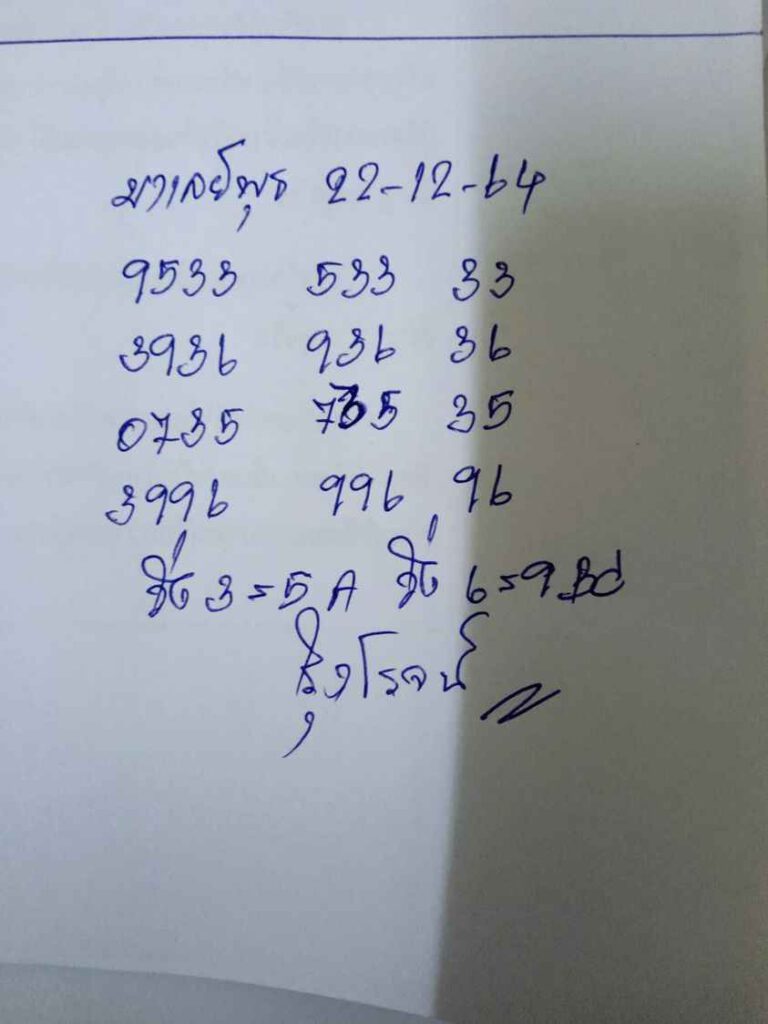 มาเลย์พุธ 22-12-64
9533 533 33
3936 936 36
0735 735 35
3996 996 96
3=5 A 6=9 Bd
รุ่งโรจน์